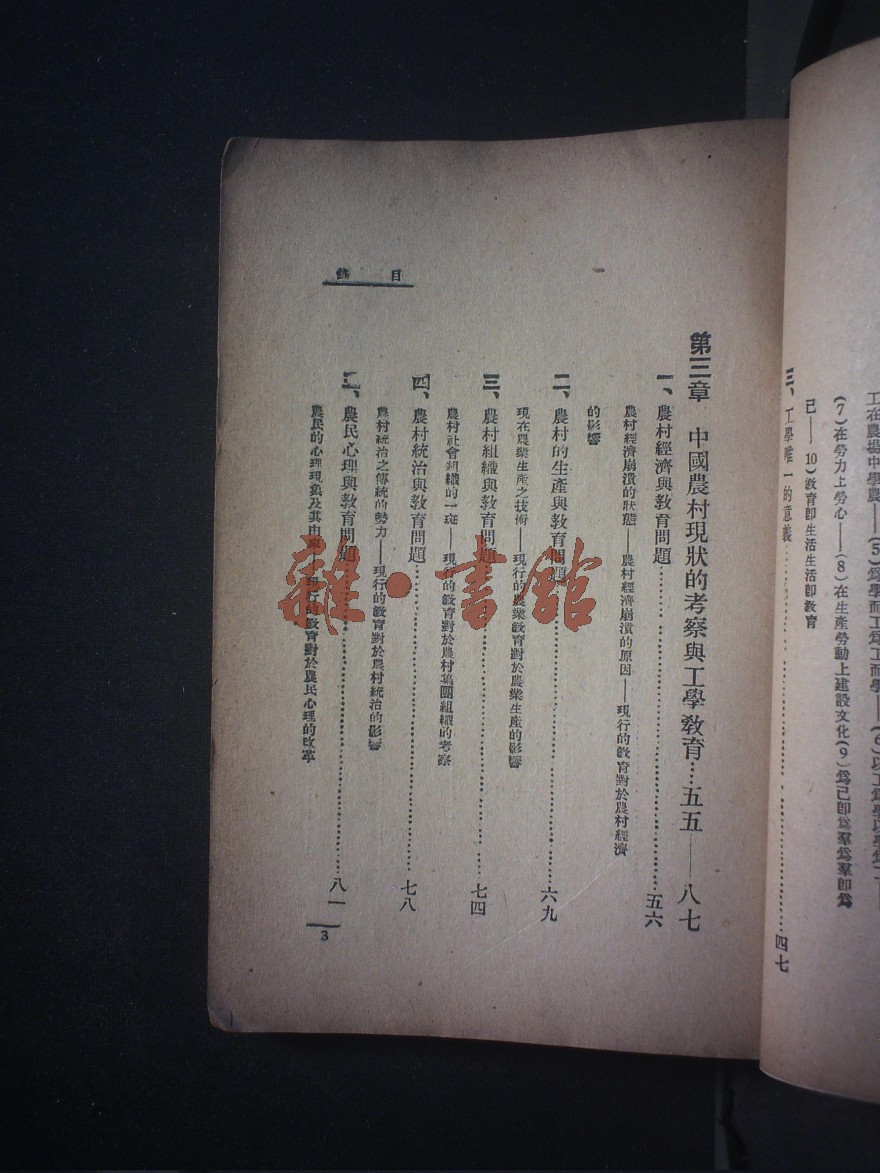 工在農場中學農——(5)為學而工為工而學——(6)
(7)在勞力上勞心——(8)在生產勞動上建設文化(9)為己即為羣為羣即為
己——10)教育即生活生活即教育
三、工學唯一的意義……四七
第三章 中國農村現狀的考察與工學教育…五五——八七
一、農村經濟與教育問題……五六
農村經濟崩潰的狀態——農村經濟崩潰的原因——現行的教育對於農村經濟
的影響
二、農村的生產與教育問題……六九
現在農業生產之技術——現行的農業教育對於農業生產的影響
三、農村組織與教育問題……七四
農村社會組織的一斑——現行的教育對於農村集團組織的考察
四、農村統治與教育問題……七八
農村統治之傳統的勢力——現行的教育對於農村統治的影響
農民心理與教育問題……八一
農民的心理現象及其由來——現行的教育對於農民心理的改革
目錄
3
雜·書館